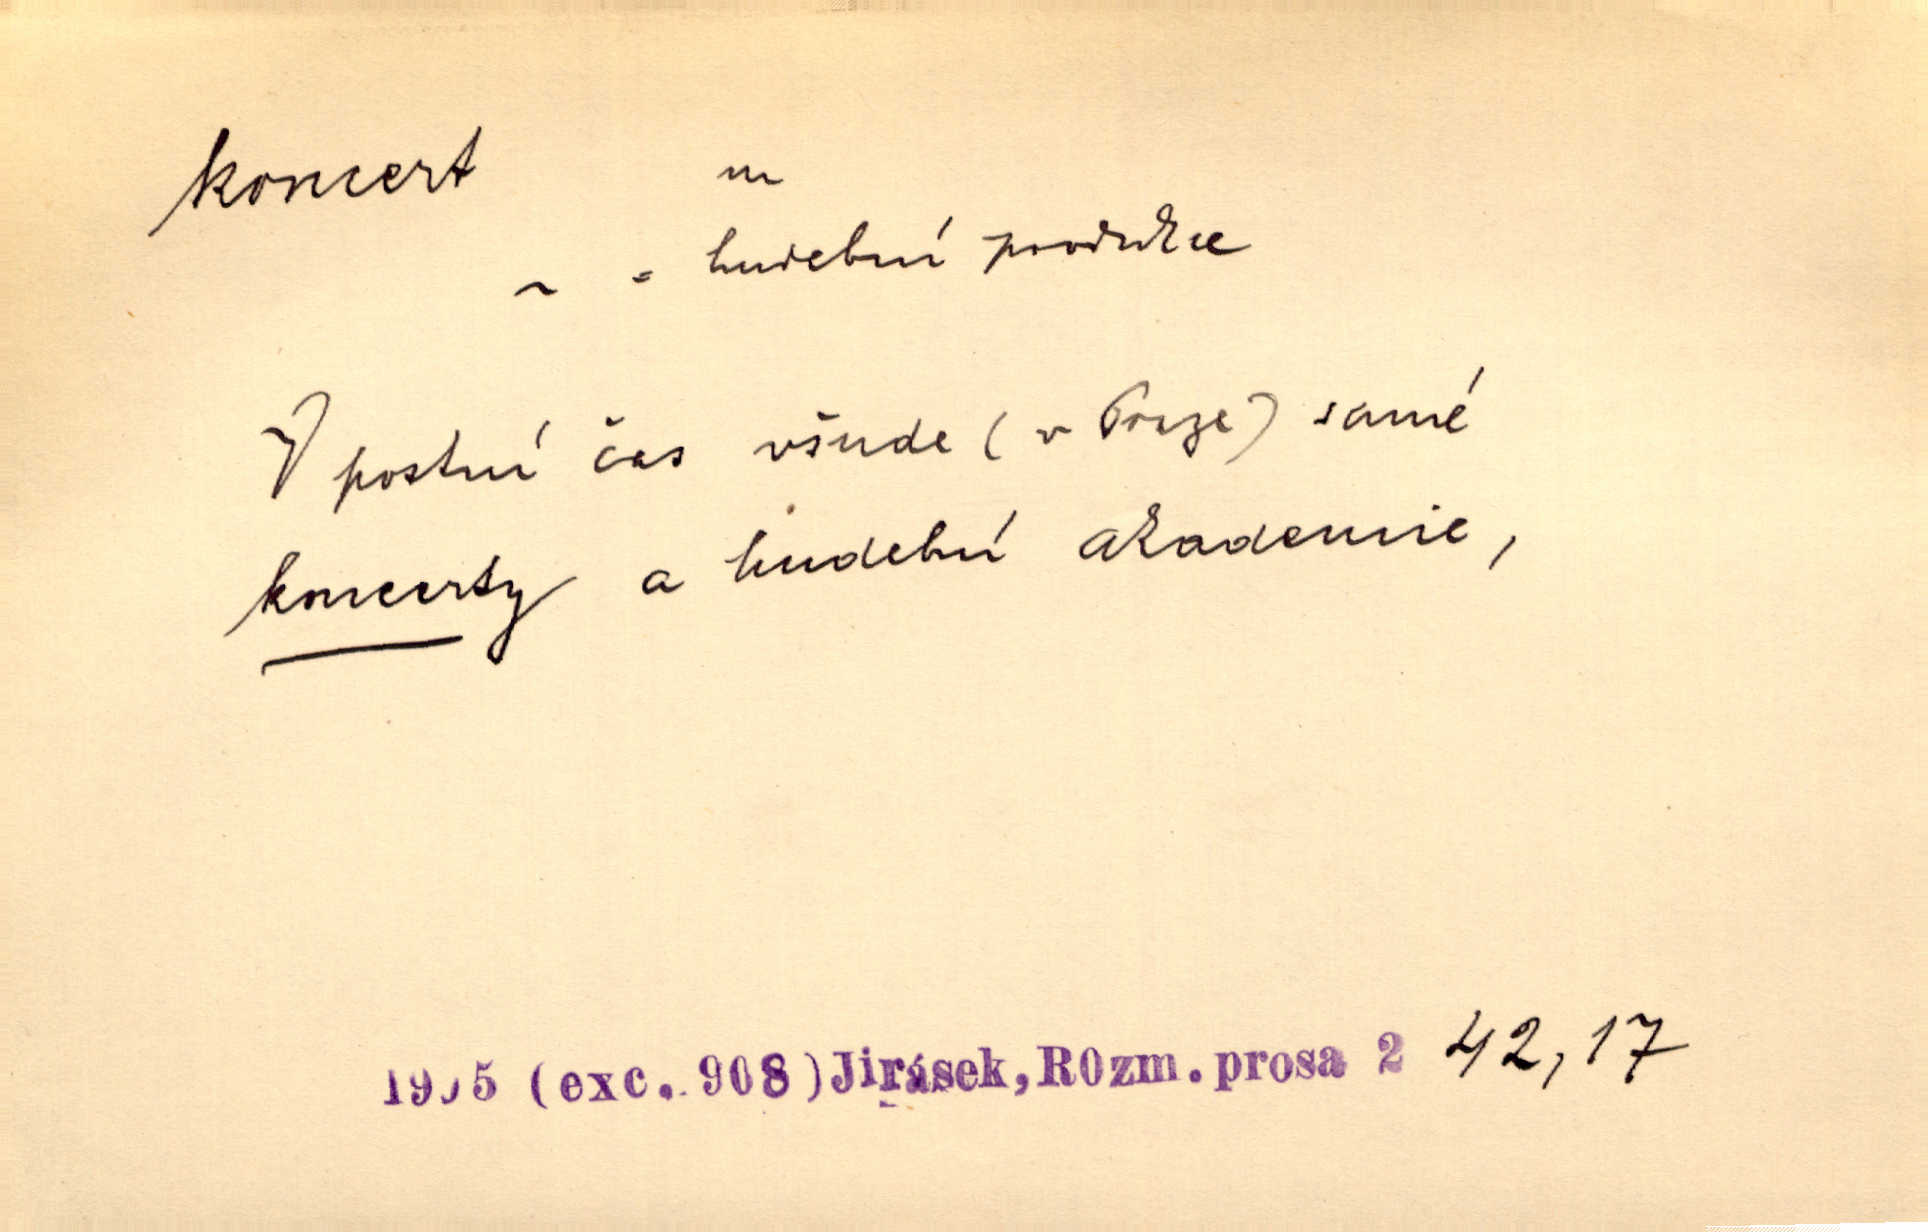 koncert m
~ = hudební produkce
V postní čas všude (v Praze) samé
koncerty a hudební akademie,
1905 (exc. 908) Jirásek, ROzm. prosa 2 42,17